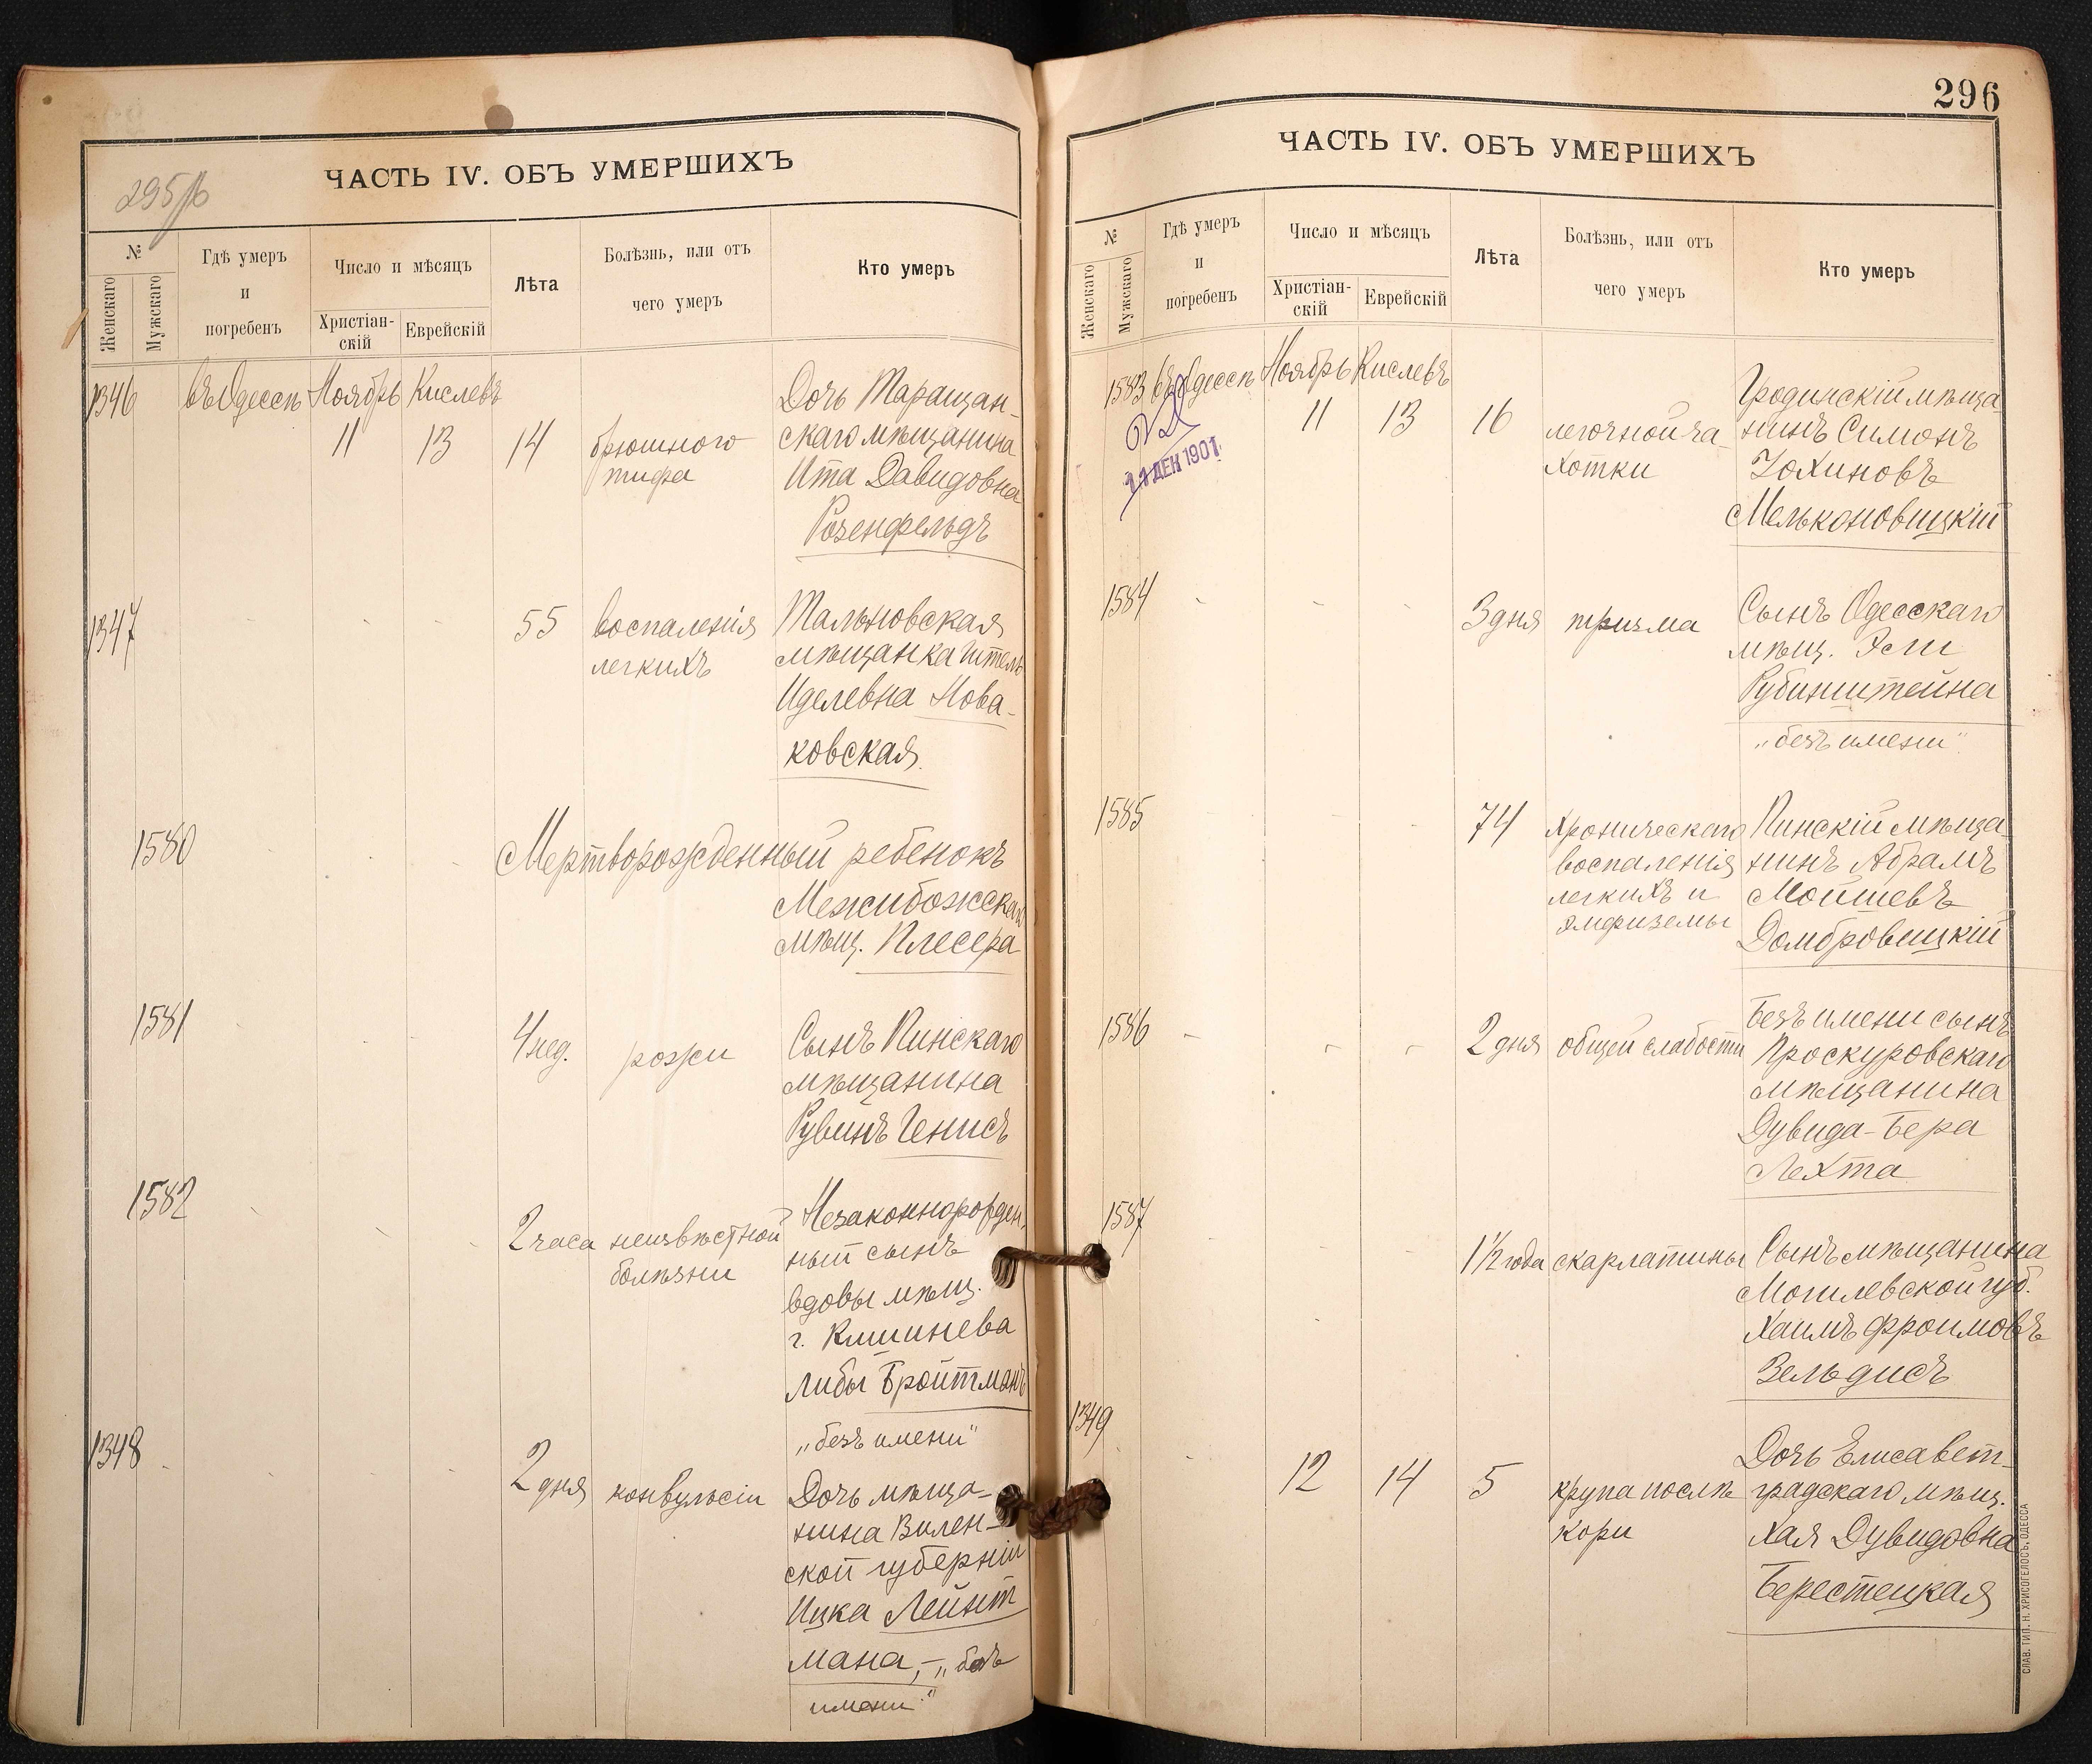 295/б
ЧАСТЬ IV. ОБЪ УМЕРШИХЪ
№
Женскаго
Мужскаго
Гдѣ умеръ
и
погребенъ
Число и мѣсяцъ
Христіан-
скій
Еврейскій
Лѣта
Болѣзнь, или отъ
чего умеръ
Кто умеръ
1346 въ Одессѣ Ноябрь Кислевъ
11 13 14
брюшного
тифа
Дочь Таращан-
скаго мѣщанина
Ита Давидовна
Розенфельдъ
1347 - - - 55
воспаленія
легкихъ
Тальновская
мѣщанка Ител
Иделевна Нова-
ковская.
1580 - - -
Мертворожденный ребенокъ
Межибожскаго
мѣщ. Плесера
1581 - - - 4 нед. рожи
Сынъ Пинскаго
мѣщанина
Рувинъ Генисъ
1582 - - - 2 часа
неизвѣстной
болѣзни
Незаконнорожден-
ный сынъ
вдовы мѣщ.
г. Кишинева
Либы Бройтманъ
„безъ имени"
1348 - - - - 2 дня конвульсіи
Дочь мѣща-
нина Вилен-
ской губерніи
Ицка Лейнт
мана, - „безъ
имени"
296
ЧАСТЬ IV. ОБЪ УМЕРШИХЪ
№
Женскаго
Мужскаго
Гдѣ умеръ
и
погребенъ
Число и мѣсяцъ
Христіан-
скій
Еврейскій
Лѣта
Болѣзнь, или отъ
чего умеръ
Кто умеръ
1583 въ Одессѣ Ноябрь Кислевъ
11 ДЕК 1901
11 13 16
легочной ча-
хотки
Гродинскій мѣща-
нинъ Симонъ
Іохиновъ
Мелькановицкій
1584 - - - 3 дня тризма
Сынъ Одесскаго
мѣщ. Эсли
Рубинштейна
„безъ имени"
1585 - - - 74
Хроническаго
воспаленія
легкихъ и
эмфиземы
Пинскій мѣща-
нинъ Абрамъ
Мойшевъ
Домбровицкій
1586 - - - 2 дня общей слабости
Безъ имени сынъ
Проскуровскаго
мѣщанина
Дувида-Бера
Лехта
1587 - - - 1½ года скарлатины
Сынъ мѣщанина
Могилевской губ.
Хаимъ Фроимовъ
Зельдисъ
1349 - 12 14 5
крупа послѣ
кори
Дочь Елисавет-
градскаго мѣщ.
Хая Дувидовна
Берестецкая
СЛАВ. ТИП. Н. ХРИСОГЕЛОСЪ, ОДЕССА